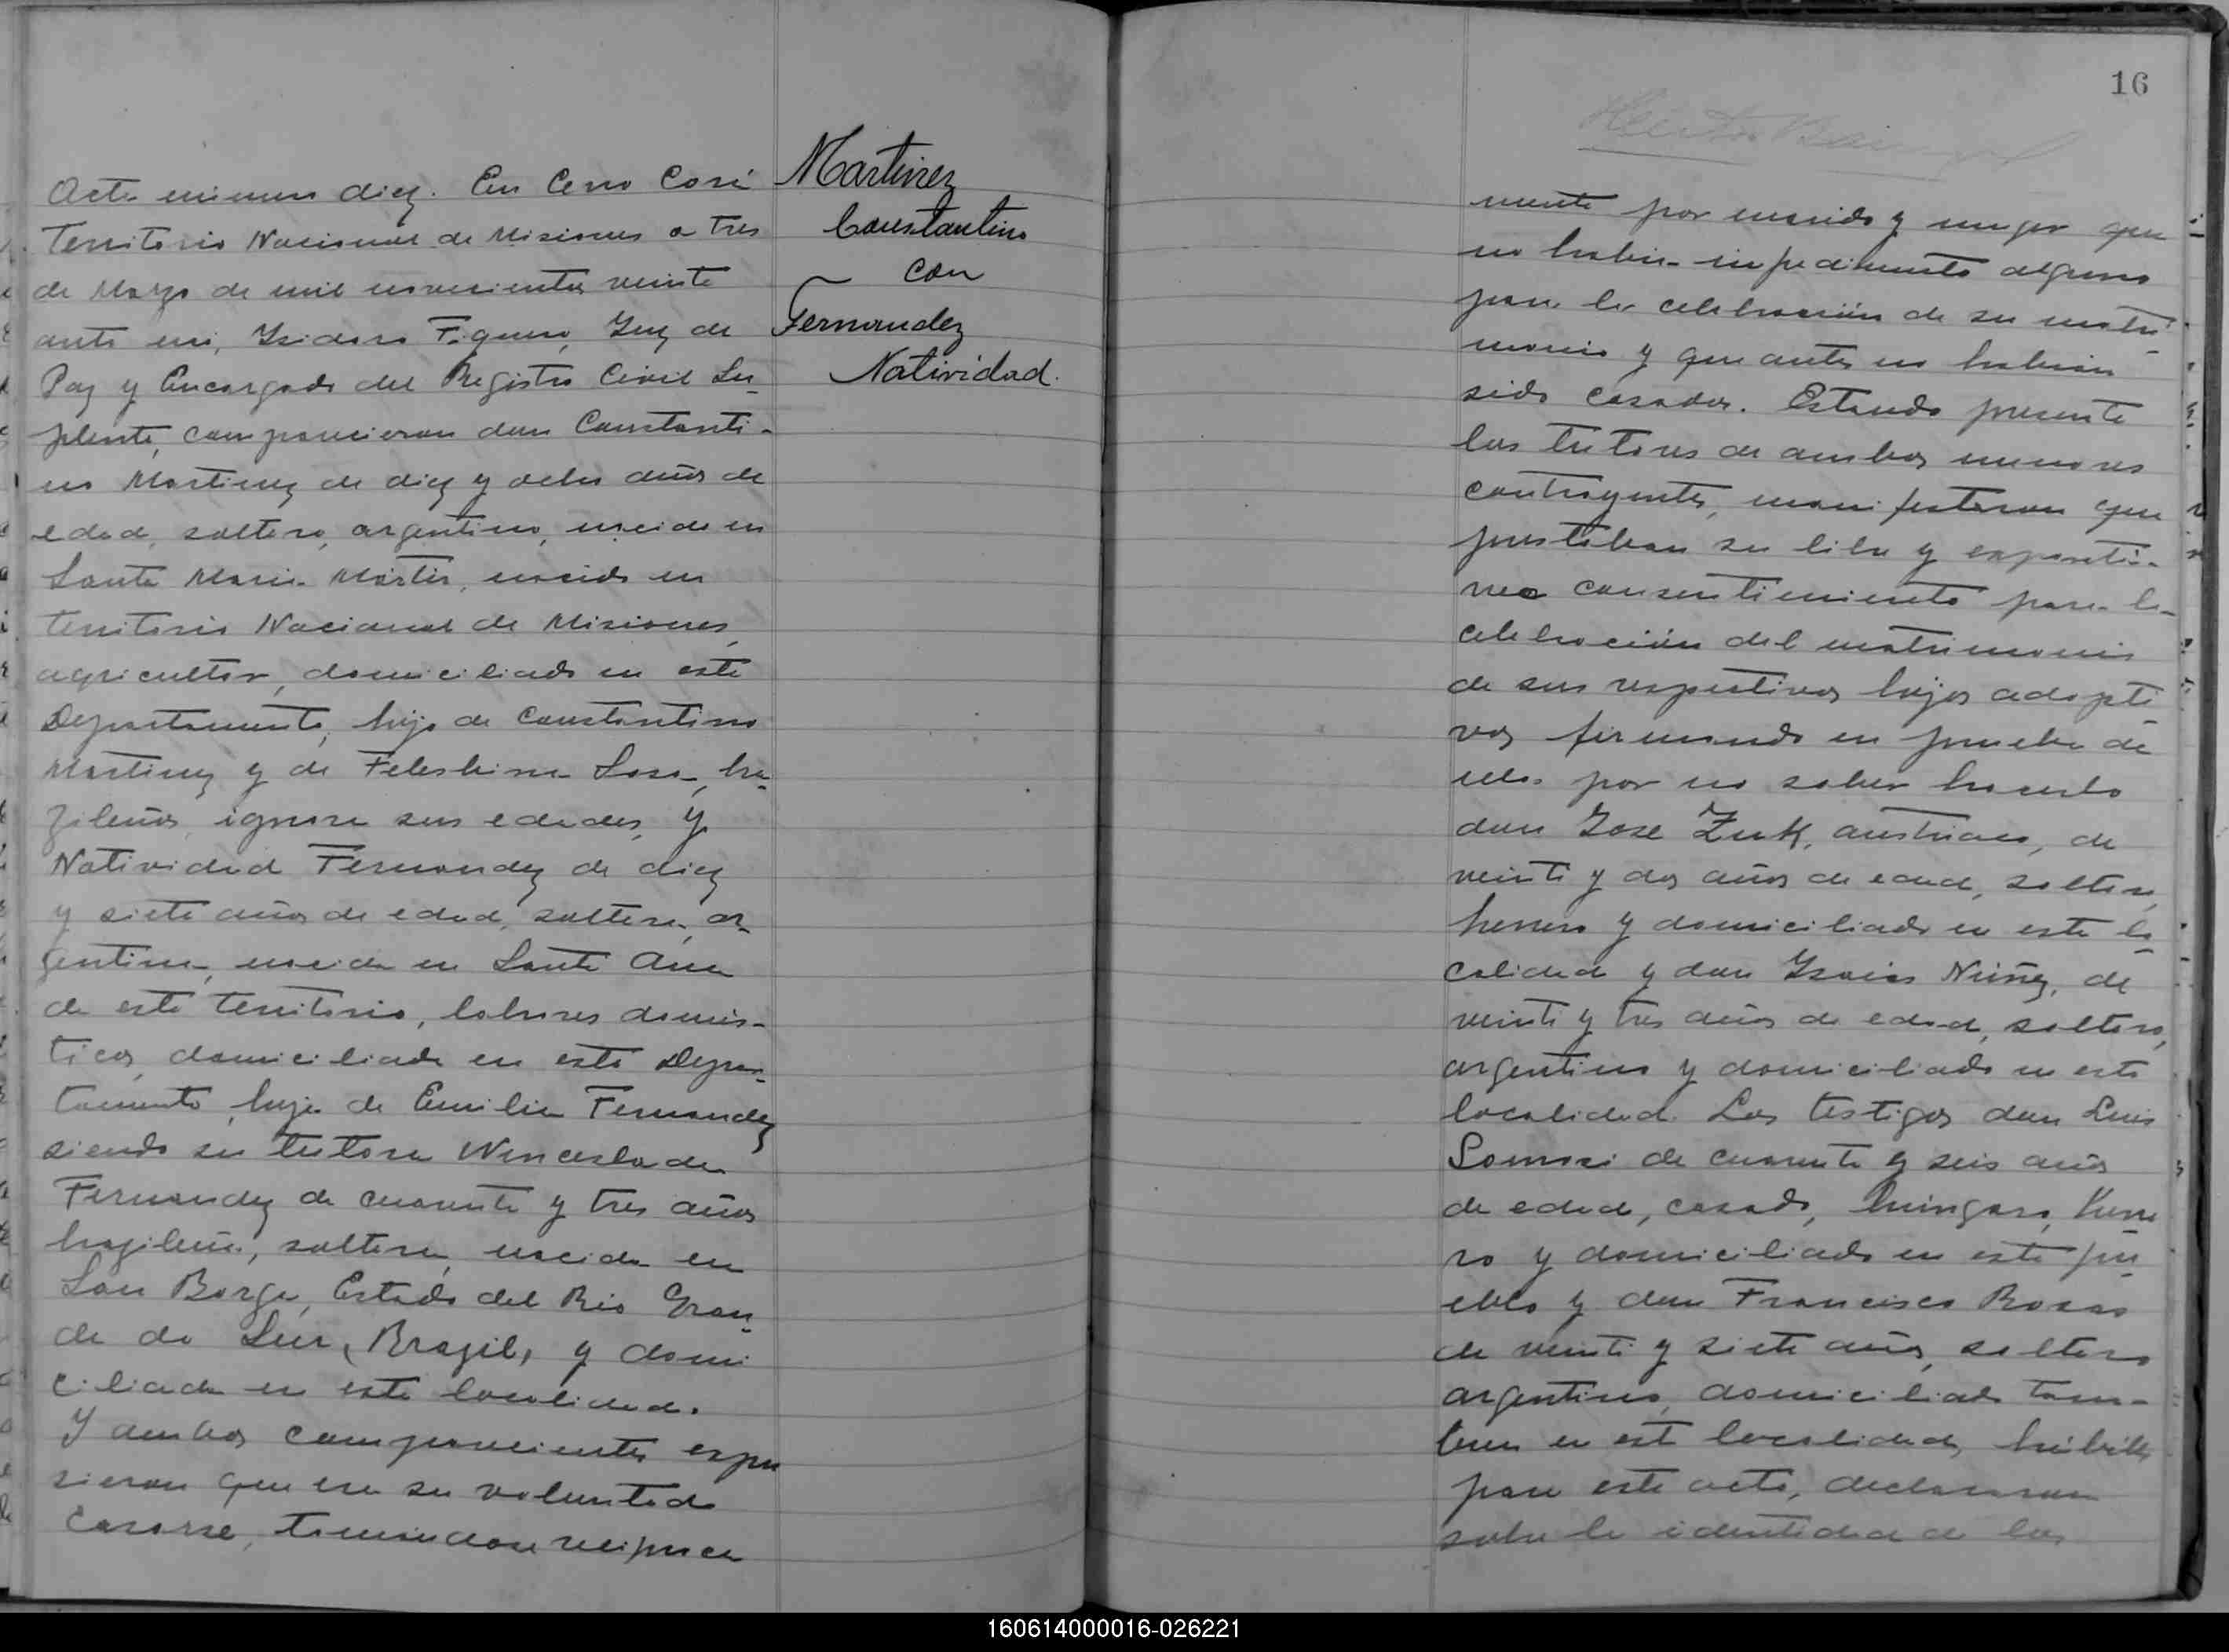 Acta número diez. En Cerro Corá
Territorio Nacional de Misiones a tres
de Marzo de mil novecientos veinte
ante mi, Isidoro Figuero, Juez de
Paz y Encargado del Registro Civil Su-
plente, comparecieron don Constanti-
no Martinez de diez y ocho años de
edad, soltero, argentino, nacido en
Santa Maria Mártir, nacido en
territorio Nacional de Misiones,
agricultor, domiciliado en este
Departamento, hijo de Constantino
Martinez y de Felesbina Sosa, bra-
zileños, ignora sus edades, y
Natividad Fernandez de diez
y siete años de edad, soltera, ar-
gentina, nacida en Santa Ana
de este territorio, labores domés-
ticos, domiciliada en este Depar-
tamento, hija de Emilia Fernandez
siendo su tutora Wenceslada
Fernandez de cuarenta y tres años
brazileña, soltera, nacida en
San Borga, Estado del Rio Gran-
de do Sur, Brazil, y domi
ciliada en esta localidad.
Y ambos comparecientes expu
sieron que era su voluntad
Casarse, tomandose reciproca
Martinez
Constantino
con
Fernandez
Natividad.
16
mente por marido y muger que
no habia impedimento alguno
para la celebración de su matri-
monio y que antes no habian
sido casados. Estando presente
los tutores de ambos menores
contrayentes, manifestaron que
prestaban su libre y
consentimiento para la
celebración del matrimonio
de sus respectivos hijos adopti-
vos firmando en prueba de
ello por no saber hacerlo
don Jose Zuk, austriaco, de
veinti y dos años de edad, soltero,
herrero y domiciliado en esta lo-
calidad y don Isaias Núñez, de
veinti y tres años de edad, soltero,
argentino y domiciliado en esta
localidad. Los testigos don Luis
Somosi de cuarenta y seis años
de edad, casado, húngaro, herre
ro y domiciliado en este pu-
eblo y don Francisco Rosas
de veinti y siete años, soltero
argentino, domiciliado tam-
bien en est localidad, hábiles
para este acto, declararon
sobre la identidad de los
160614000016-026221